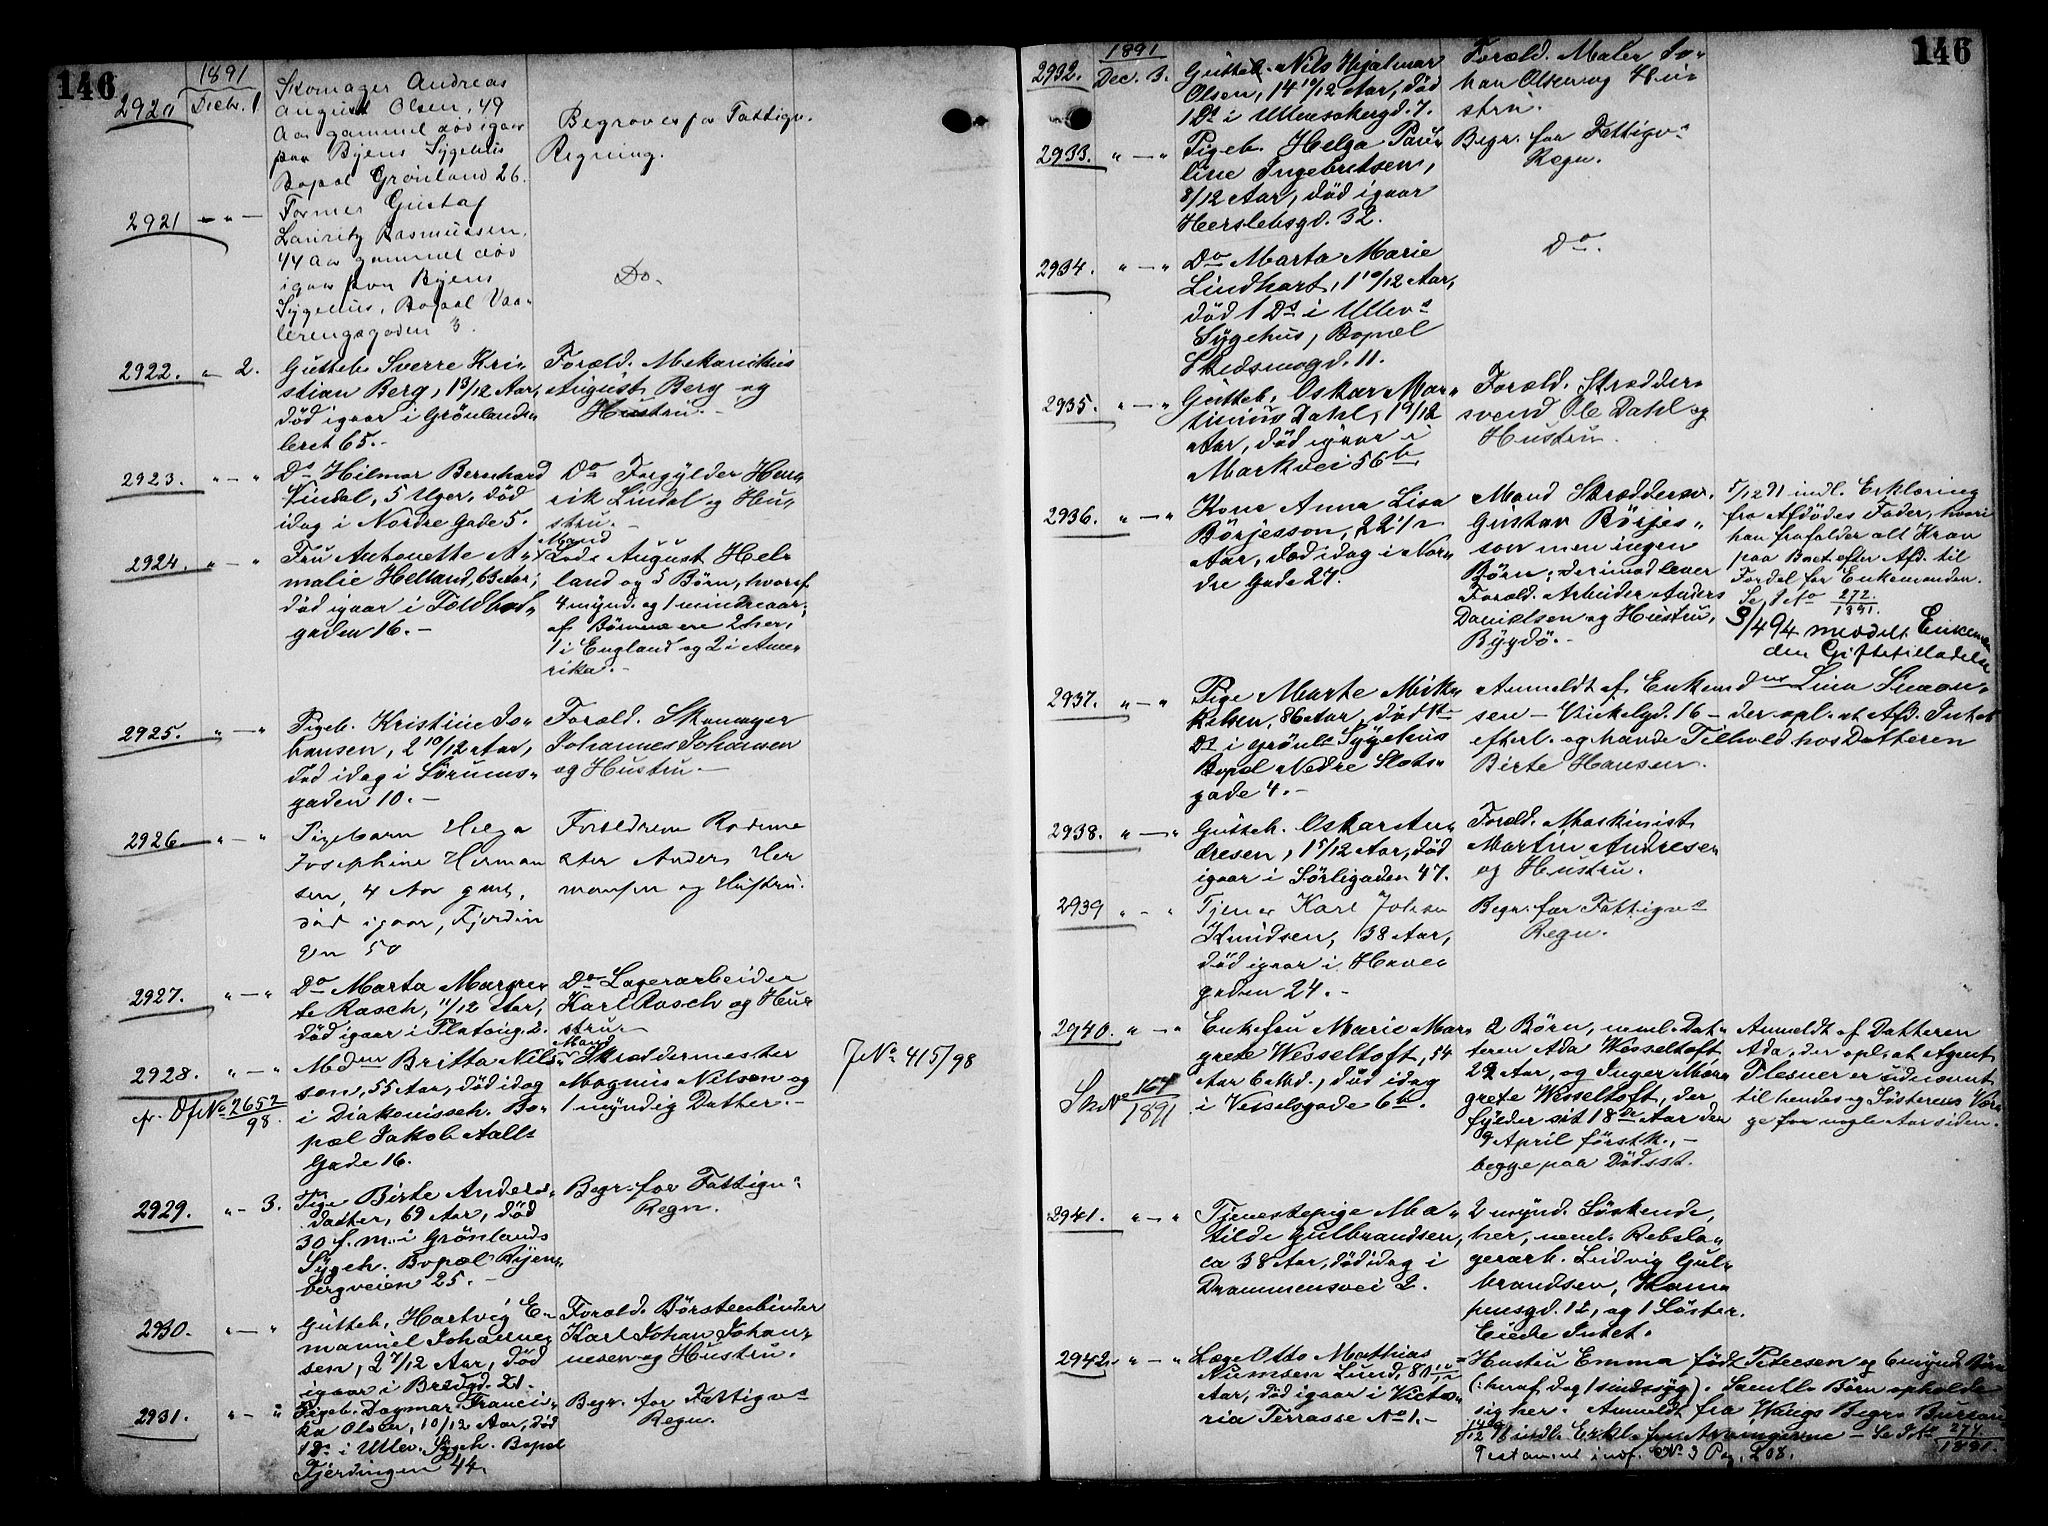 146
1891
2920 Decbr. 1
Skomager Andreas
August Olsen, 49
Aar gammel død igaar
paa Byens Sygehus
Bopæl Grønland 26.
Begraves for Fattigv.
Regning.
2921 " — "
Former Gustaf
Lauritz Rasmussen,
44 Aar gammel død
igaar paa Byens
Sygehus, Bopæl Vaa-
lerengagaden 3.
Do.
2922. " 2.
Gutteb. Sverre Kri-
stian Berg, 1 3/12 Aar,
død igaar i Grønlands-
leret 65.-
Foræld. Mekanikus
August Berg og
Hustru.-
2923. " — "
Do Hilmar Bernhard
Lindal, 5 Uger, død
idag i Nordre Gade 5.
Do Forgylder Hen-
rik Lindal og Hu-
stru.-
2924. " — "
Fru Antonette A-
malie Helland, 63 Aar,
død igaar i Toldbod-
gaden 16.-
Mand
Lods August Hel-
land og 5 Børn, hvoraf
4 mynd. og 1 mindreaar.
af Børnene ere 2 her,
1 i England og 2 i Ame-
rika.-
2925. " — "
Pigeb. Kristine Jo-
hansen, 2 10/12 Aar,
død idag i Sørums-
gaden 10.-
Foræld. Skomager
Johannes Johansen
og Hustru.-
2926. " — "
Pigebarn Helga
Josephine Herman
sen, 4 Aar gml,
død igaar, Fjerdin
gen 50
Forældrene Rodeme
ster Anders Her
mansen og Hustru.
2927. " — "
Do Marta Margre-
te Rasch, 11/12 Aar,
død igaar i Platoug. 2.
Do Lagerarbeider
Karl Rasch og Hu-
stru.-
2928. " — "
cfr. Df No 2652/98.
Mdm Britta Nils-
son, 55 Aar, død idag
i Diakonisseh. Bo-
pæl Jakob Aalls
Gade 16.
Mand
Skræddermester
Magnus Nilson og
1 myndig Datter.-
J No 415/98
2929. " — 3.
Pige Birte Anders-
datter, 69 Aar, død
30 f. m. i Grønlands
Sygeh. Bopæl Ryen-
bergveien 25.-
Begr. for Fattigv.
Regn.
2930. " — "
Gutteb. Hartvig E-
manuel Johanne-
sen, 2 7/12 Aar, død
igaar i Bredgd. 21.-
Foræld. Børstenbinder
Karl Johan Johan-
nesen og Hustru.
2931. " — "
Pigeb. Dagmar Francis-
ka Olsen, 10/12 Aar, død
1 Ds. i Ullev. Sygeh. Bopæl
Fjerdingen 44.
Begr. for Fattigvs
Regn.
146
1891
2932. Dec. 3.
Gutteb. Nils Hjalmar
Olsen, 14 10/12 Aar, død
1 Ds i Ullensakergd. 7.
Foræld. Maler Jo-
han Olsen og Hu-
stru.
2933. " — "
Pigeb. Helga Pau-
line Ingebretsen,
8/12 Aar, død igaar
Herslebsgd. 32.
Begr. for Fattigvs
Regn.
2934. " — "
Do Marta Marie
Lindhart, 1 10/12 Aar,
død 1 Ds i Ullevs
Sygehus, Bopæl
Skedsmogd. 11.
Do.
2935. " — "
Gutteb. Oskar Mar-
tinius Dahl, 1 9/12
Aar, død igaar i
Markvei 56 b.
Foræld. Skrædder-
svend Ole Dahl og
Hustru.
2936. " — "
Kone Anna Lisa
Börjesson, 22 1/2
Aar, død idag i Nor-
dre Gade 27.
Mand Skræddersv.
Gustav Börjes-
son men ingen
Børn; derimod lever
Foræld. Arbeider Anders
Danielsen og Hustru,
Bygdö.-
5/12 91 indl. Erklæring
fra Afdødes Fader, hvori
han frafalder alt Krav
paa Boet efter Afd. til
Fordel for Enkemanden.
Se J No 272./1891.
9/4 94 meddelt Enkeman
den Giftetilladelse
2937. " — "
Pige Marte Mik-
kelsen, 86 Aar, død 1st
Ds i Grønls Sygehus
Bopæl Nedre Slots-
gade 4.-
Anmeldt af Enkemdns Lina Simon-
sen — Vinkelgd. 16 — der opl. at Afd. Intet
efterl. og havde Tilhold hos Datteren
Birte Hansen.
2938. " — "
Gutteb. Oskar An-
dresen, 1 5/12 Aar, død
igaar i Sörligaden 47.
Foræld. Maskinist
Martin Andresen
og Hustru.
2939 " - "
Tjener Karl Johan
Knudsen, 38 Aar,
død igaar i Have-
gaden 24.-
Begr. for Fattigvs
Regn.
2940. " — "
Sk No 164/1891
Enkefru Marie Mar-
grete Wesseltoft, 54
Aar 6 Md., død idag
i Vesselsgade 6 b.
2 Børn, neml. Dat-
teren Ada Wesseltoft
22 Aar, og Inger Mar-
grete Wesseltoft, der
fylder sit 18de Aar den
9 April førstk.,-
begge paa Dødsst.
Anmeldt af Datteren
Ada, der opl. at Agent
Plesner er udnævnt
til hendes og Søsterens Vær-
ge for nogle Aar siden.
2941. " — "
Tjenestepige Ma-
tilde Gulbrandsen,
ca 38 Aar, død idag i
Drammensvei 2.
2 mynd. Søskende,
her, neml. Rebsla-
gerarb. Ludvig Gul-
brandsen, Kam-
pensgd. 12, og 1 Søster.
Eiede Intet.
2942. " — "
Læge Otto Mathias
Numsen Lund, 80
Aar, død igaar i Victo-
ria Terrasse No 1.-
Hustru Emma født Petersen og 6 mynd. Børn
(: heraf dog 1 sindssyg). Samtl. Børn opholde
sig her. Anmeldt fra Wangs Begr. Bureau
indl. Erkl. fra Arvingerne — Se J No 274./1891.
Testament indf. No 3 Pag. 208.